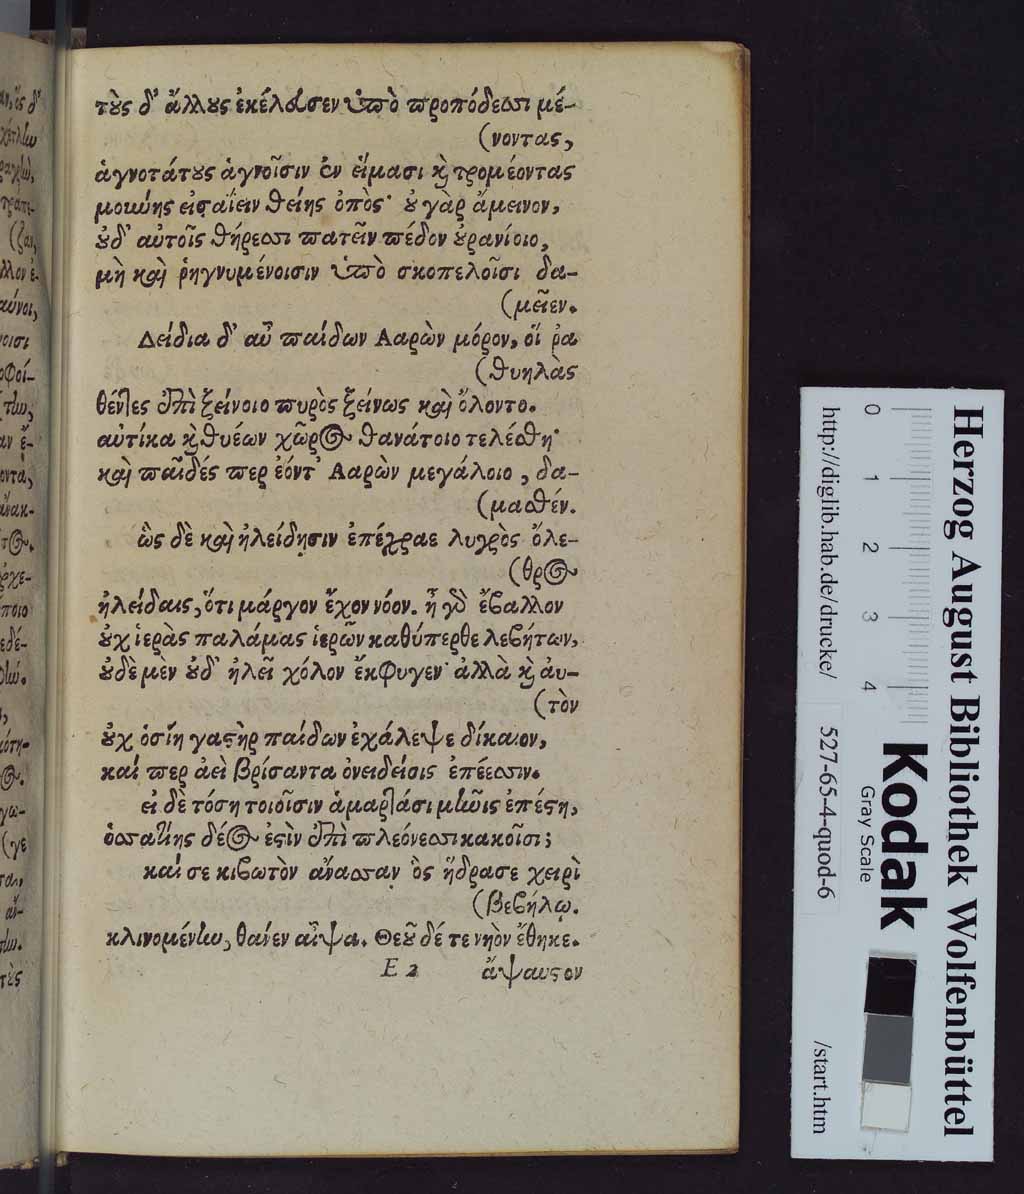 τοὺς δ' ἄλλους ἐκέλευσεν ὑπὸ προπόδεσσι μέ-
(νοντας,
ἁγνοτάτους ἁγνοῖσιν ἐν εἵμασι καὶ τρομέοντας
μουνης εἰσαΐειν θείης ὀπὸς· οὐ γὰρ ἄμεινον,
οὐδ' αὐτοῖς θήρεσσι πατεῖν πέδον οὐρανίοιο,
μὴ καὶ ῥηγνυμένοισιν ὑπὸ σκοπελοῖσι δα-
(μεῖεν.
Δείδια δ' αὖ παίδων Ααρὼν μόρον, οἵ ῥα
(θυηλὰς
θέντες ἐπὶ ξείνοιο πυρὸς ξείνως καὶ ὄλοντο.
αὐτίκα καὶ θυέων χῶρος θανάτοιο τελέσθη·
καὶ παῖδές περ ἐόντ' Ααρὼν μεγάλοιο, δα-
(μασθέν.
ὣς δὲ καὶ ἠλείδῃσιν ἐπέχραε λυγρὸς ὄλε-
(θρος
ἠλείδαις, ὅτι μάργον ἔχον νόον. ἦ γὰρ ἔβαλλον
οὐχ ἱερὰς παλάμας ἱερῶν καθύπερθε λεβήτων,
οὐδὲ μὲν οὐδ' ἠλεῖ χόλον ἔκφυγεν· ἀλλὰ καὶ ἀυ-
(τὸν
οὐχ ὁσίη γαστὴρ παίδων ἐχάλεψε δίκαιον,
καί περ ἀεὶ βρίσαντα ὀνειδείοις ἐπέεσσιν.
εἰ δὲ τόση τοιοῖσιν ἁμαρτάσι μῆνις ἐπέστη,
ὁσσατίης δέος ἐστὶν ἐπὶ πλεόνεσσι κακοῖσι;
καί σε κιβωτὸν ἄνασσαν ὃς ἥδρασε χειρὶ
(βεβήλῳ.
κλινομένην, θάνεν αἶψα. Θεοῦ δέ τε νηὸν ἔθηκε.
E 2 ἄψαυστον
Herzog August Bibliothek Wolfenbüttel
Kodak
Gray Scale
0 1 2 3 4
http://diglib.hab.de/drucke/ 527-65-4-quod-6 /start.htm